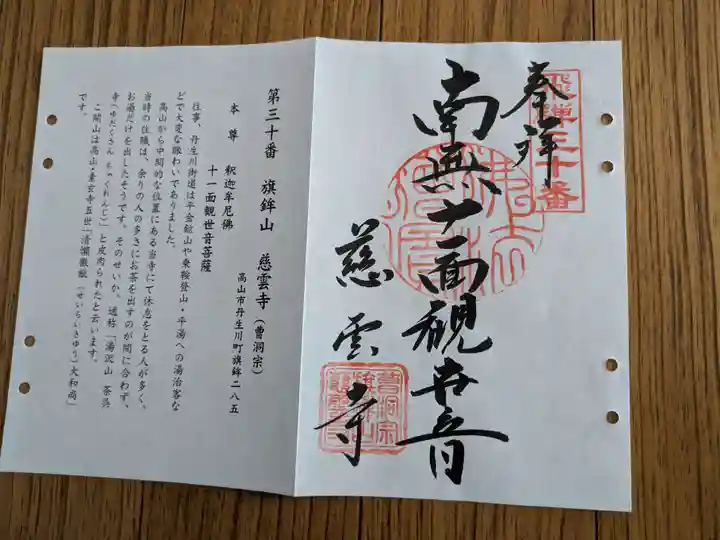 奉拝
飛騨三十番
南無十一面観世音
慈雲寺
第三十番　旗鉾山　慈雲寺（曹洞宗）
高山市丹生川町旗鉾二八五
本尊　釈迦牟尼佛
十一面観世音菩薩
往事、丹生川街道は平金鉱山や乗鞍登山・平湯への湯治客な
どで大変な賑わいでありました。
高山から中間的な位置にある当寺にて休息をとる人が多く、
当時の住職は、余りの人の多さにお茶を出すのが間に合わず、
お湯だけを出したそうです。そのせいか、通称「湯沢山　茶呉
寺（ゆだくさん　ちゃくれんじ）」と皮肉られたと云います。
ご開山は高山・素玄寺五世「清瀬徹猷（せいらいきゆう）大和尚」
です。